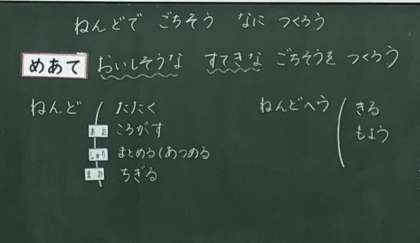 ねんどで ごちそう なに つくろう
めあて おいしそうな すてきな ごちそうを つくろう
ねんど
たたく
ころがす
まとめる(あつめる
ちぎる
ねんどべら
きる
もよう